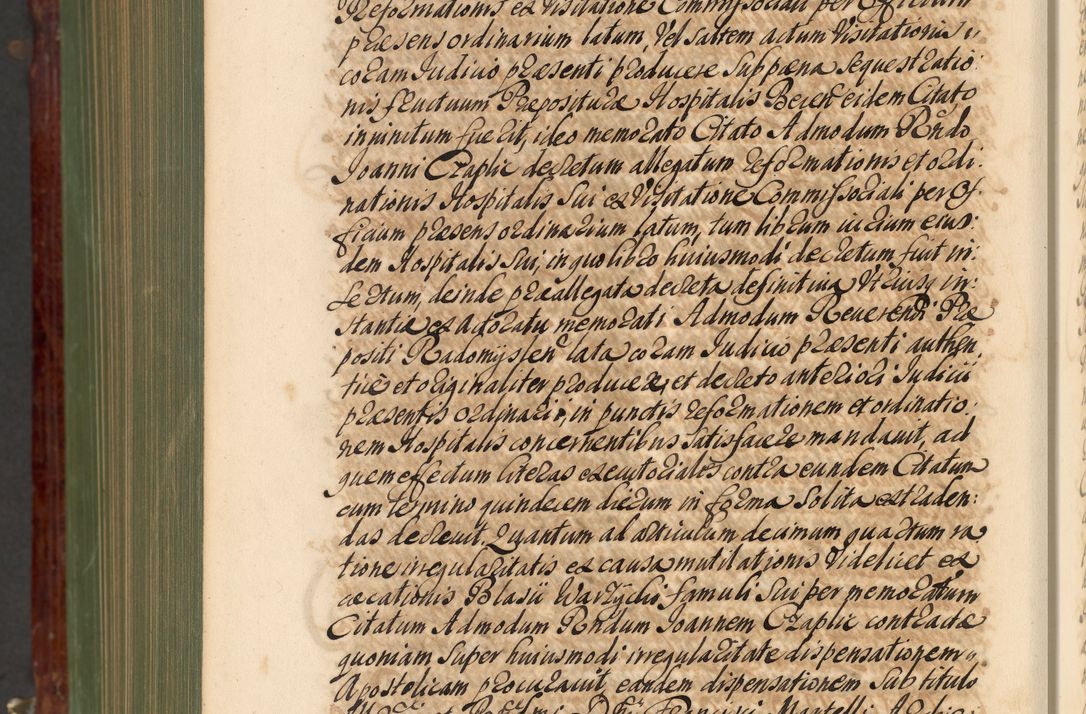 Reformationis ex Visitatione Commissoriali per Officium
præsens ordinarium latum, Vel Saltem actum Visitationis
coram Judicio præsenti producere Sub pæna Sequestratio:
nis fructuum Præpositurae Hospitalis Becen eidem Citato
iniunctum fuerit, ideo memorato Citato Admodum Rndo
Joanni Czaplic decretum allegatum reformationis et ordi:
nationis Hospitalis Sui ex Visitatione Commissoriali per Of:
ficium præsens ordinarium latum, tum librum ius:
dem Hospitalis Sui, in quo libro huiusmodi decretum fuit in:
Sertum, deinde præallegata decreta definitiua Vtriusq in:
stantiæ ex Actoratu memorati Admodum Reuerendi Præ
positi Radomyslen lata coram Judicio præsenti authen
ticè et originaliter producere, et decreto anteriori Judicii
præsentis ordinarii, in punctis reformationem et ordinatio:
nem Hospitalis concernentibus Satisfacere mandauit, ad
quem effectum literas executoriales contra eundem Citatum
cum termino quindecem dierum in forma Solita extraden:
das decreuit. Quantum ad articulum decimum quartum ra
tione irregularitatis ex causa mutilationis Videlicet ex
cæcationis Blasii Warzycki famuli Sui per memoratum
Citatum Admodum Rndum Joannem Czaplic contractæ
quoniam Super huiusmodi irregularitate dispensationem
Apostolicam procurauit, eandem dispensationem Sub titulo
et Dni Francisci Martelli